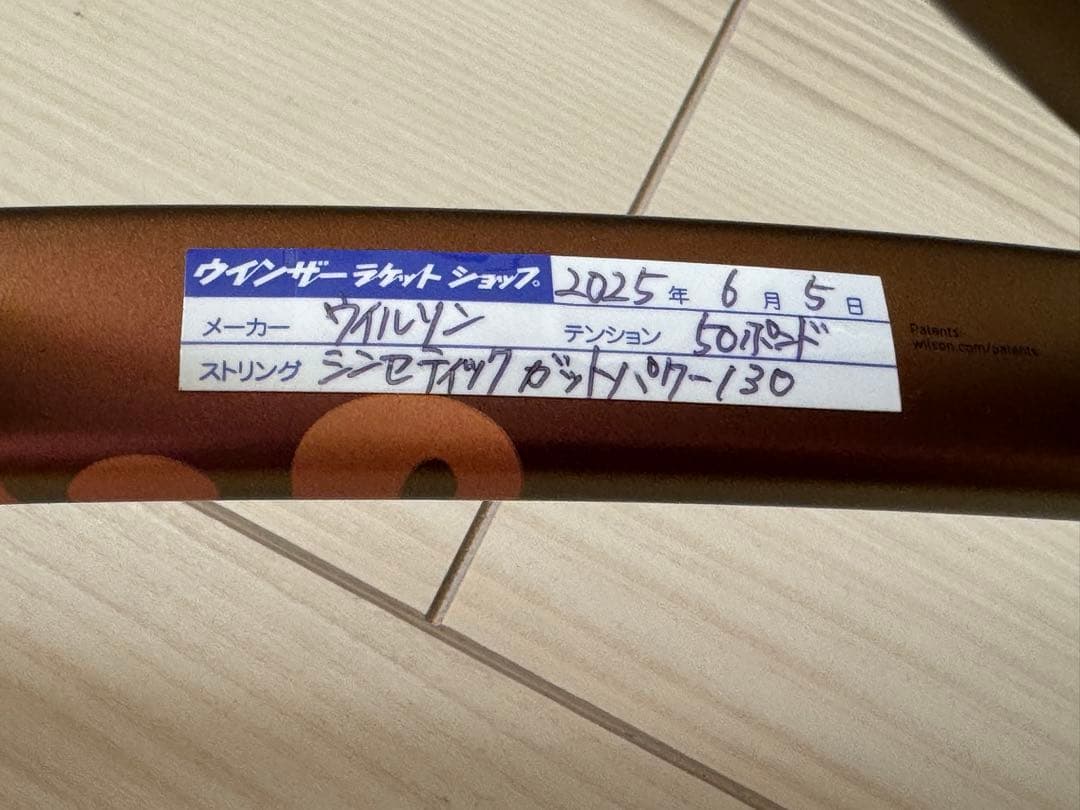 ウインザーラケットショップ。 2025年 6月 5日
メーカー ウイルソン テンション 50ポンド
ストリング シンセティック ガットパワー130
Patents:
wilson.com/patents